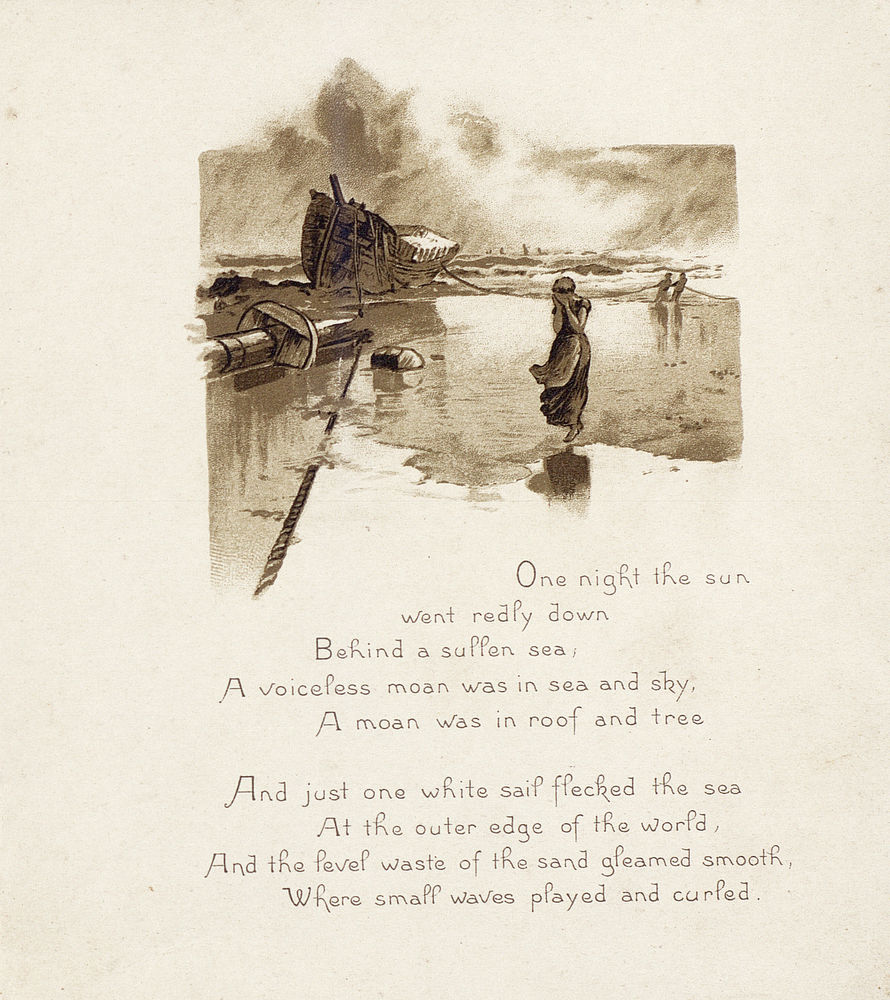 One night the sun
went redly down
Behind a sullen sea;
A voiceless moan was in sea and sky,
A moan was in roof and tree
And just one white sail flecked the sea
At the outer edge of the world,
And the level waste of the sand gleamed smooth,
Where small waves played and curled.